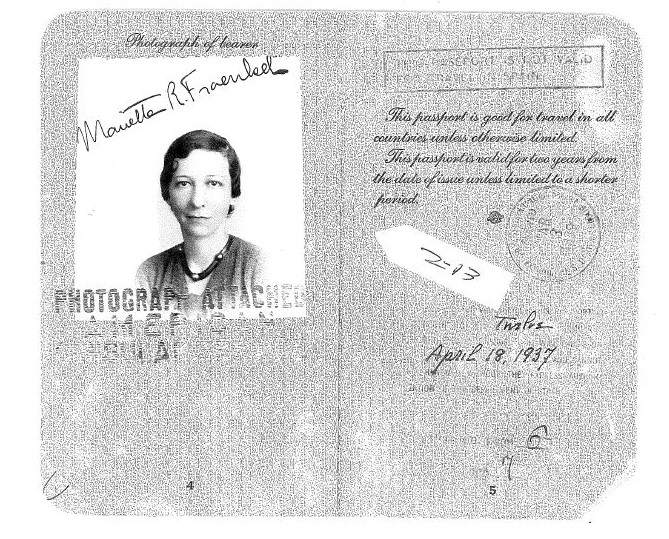 Photograph of bearer
Marietta R. Fraenkel
PHOTOGRAPH ATTACHED
AMERICAN
4
THIS PASSPORT IS NOT VALID
FOR TRAVEL IN SPAIN
This passport is good for travel in all
countries unless otherwise limited.
This passport is valid for two years from
the date of issue unless limited to a shorter
period.
2-13
Twelve
April 18, 1937
6
7
5